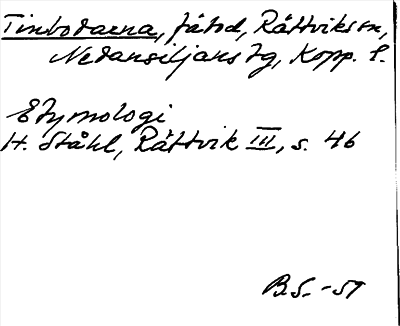 Timbodarna, fäbod, Rättviks sn,
Nedansiljans tg, Kopp. l.
Etymologi
H. Ståhl, Rättvik III, s. 46
B.S. -59